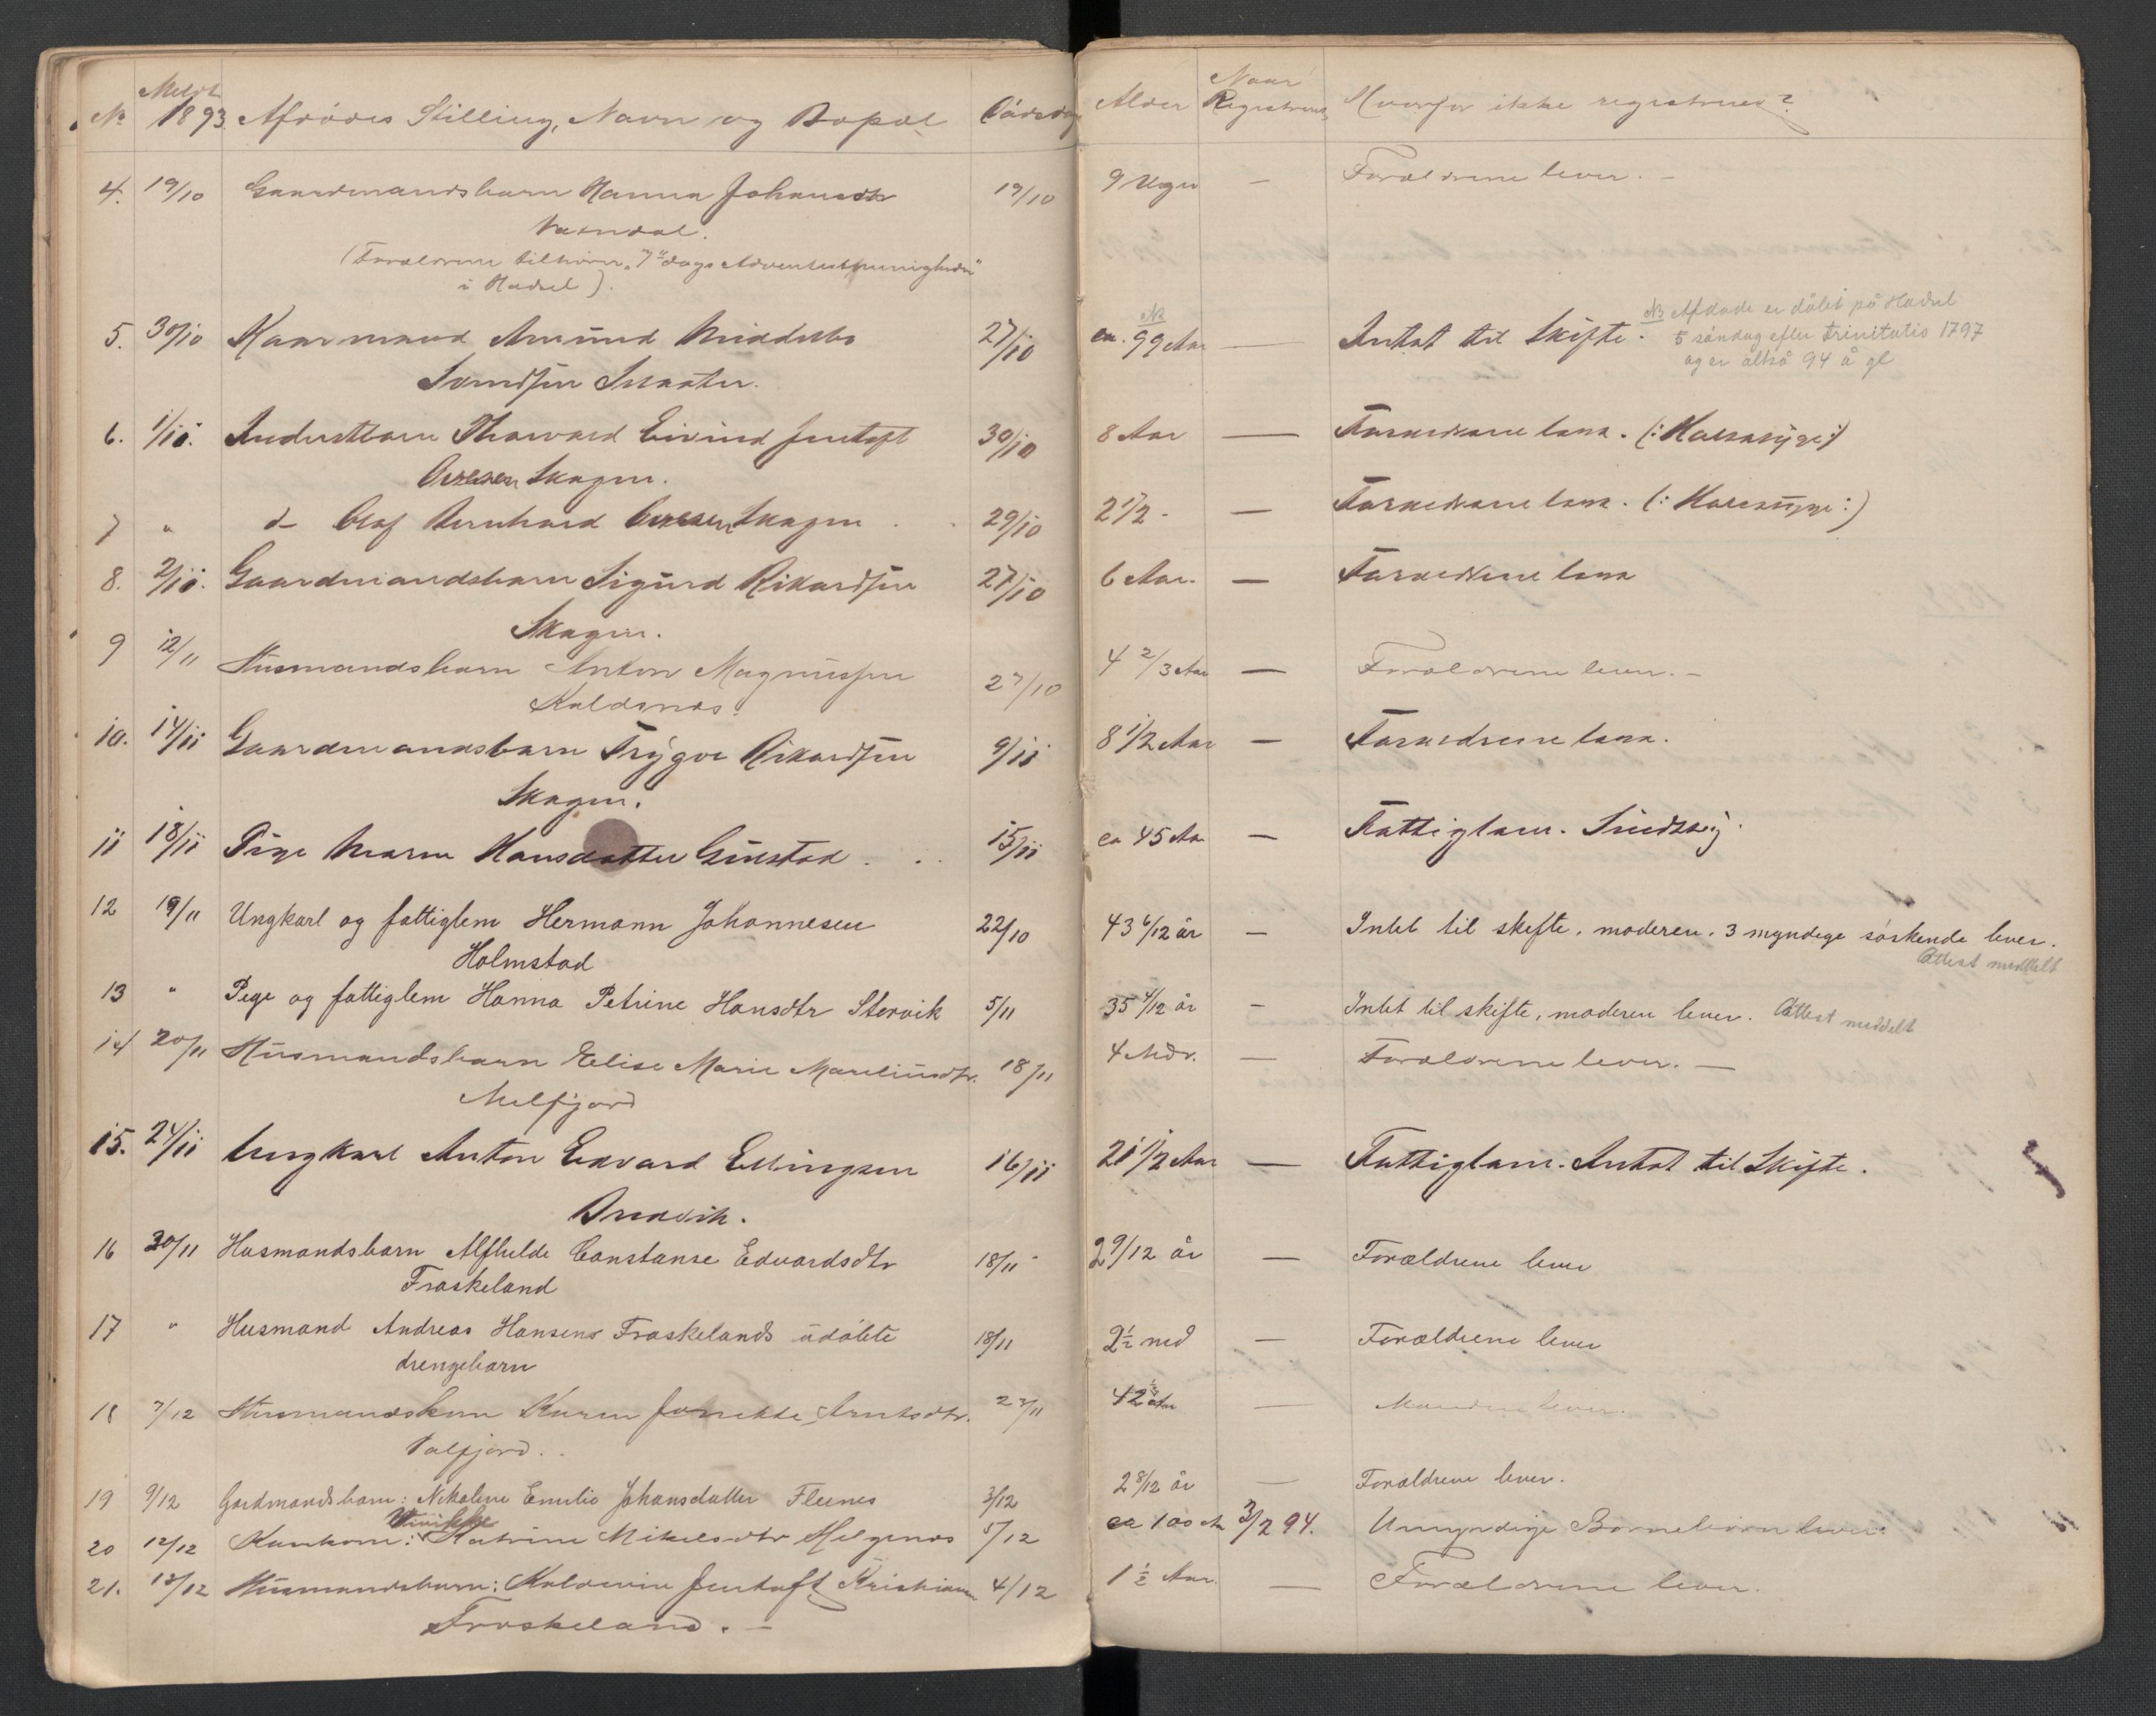 No Meldt 1893. Afdødes Stilling, Navn og Bopæl Dødsdag Alder Naar Registreret Hvorfor ikke registreret?
4. 19/10 Gaardmandsbarn Hanna Johansdtr 19/10 9 Uger — Forældrene lever. —
(Forældrene tilhører "7de dags
i Hadsel).
5. 30/10 Kaarmand Amund 27/10 ca. 99 Aar — Intet til Skifte. NB Afdøde er døbt på Hadsel
5 søndag efter trinitatis 1797
og er altså 94 å gl
6. 1/11. Inderstbarn Thorvard Eivind Jentoft 30/10 8 Aar — Forældrene leve. (: Halssyge :)
Skagen.
7 " d— Olaf Bernhard Skagen 29/10 2 1/2 - — Forældrene leve. (: Halssyge :)
8. 2/11. Gaardmandsbarn Sigurd Rikardsen 27/10 6 Aar. — Forældrene leve
Skagen.
9 12/11 Husmandsbarn Anton Magnussen 27/10 4 2/3 Aar — Forældrene lever. —
Kaldsnes.
10. 14/11 Gaardmandsbarn Trygve Rikardsen 9/11 8 1/2 Aar — Forældrene leve.
Skagen.
11 18/11 Pige Maren Hansdatter Guustad 15/11 ca 45 Aar — Fattiglem. Sindssyg.
12 19/11 Ungkarl og fattiglem Hermann Johannesen 22/10 43 6/12 år — Intet til skifte, moderen, 3 myndige søskende lever.
Holmstad Attest meddelt
13 " Pige og fattiglem Hanna Petrine Hansdtr Stervik 5/11 35 4/12 år — Intet til skifte, moderen lever. Attest meddelt
14 20/11 Husmandsbarn Elise Marie Mareliusdtr. 18/11 4 Mdr. — Forældrene lever. —
Melfjord
15. 24/11 Ungkarl Anton Edvard Ellingsen 16/11 21 1/2 Aar — Fattiglem. Intet til Skifte.
Bredvik.
16 30/11 Husmandsbarn Alfhilde Constanse Edvardsdtr 18/11 2 9/12 år — Forældrene lever
Froskeland
17 " Husmand Andreas Hansens Froskelands udøbte 18/11 2 1/2 md — Forældrene lever
drengebarn
18 7/12 Husmandskone Karen Jonette Arntsdtr. 27/11 42 1/2 Aar — Manden lever.
Valfjord.
19 9/12 Gardmandsbarn: Nikoline Emilie Johansdatter Fleines 3/12 2 8/12 år — Forældrene lever.
20 12/12 Kaarkone: Katrine Mikelsdtr Helgenes 5/12 ca 100 Aar 3/2 94. Umyndige Børnebørn lever.
21. 13/12 Husmandsbarn: Kaldemin Jentoft Kristiansen 4/12 1 1/2 Aar. — Forældrene lever.
Froskeland. —